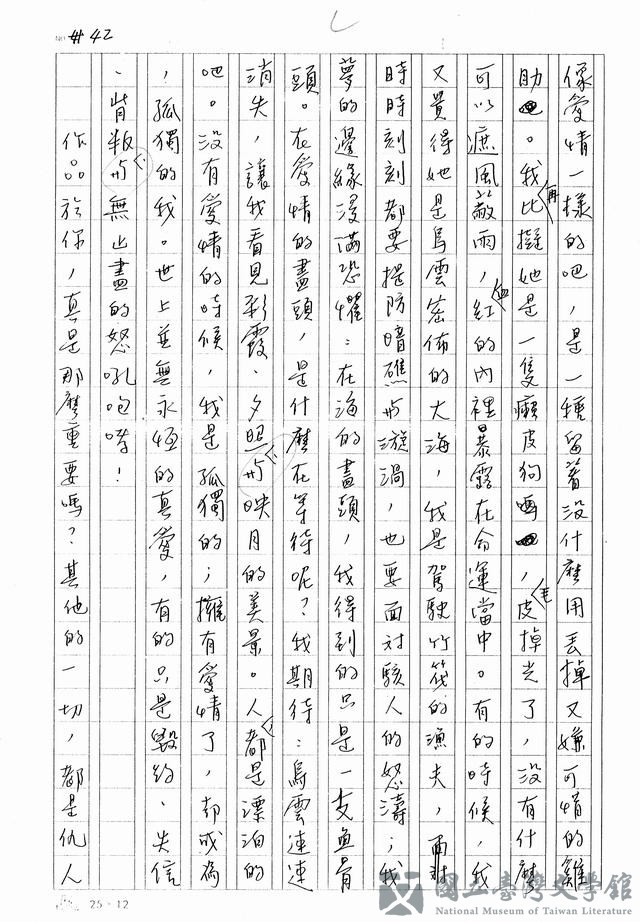 NO. #42
像愛情一樣的吧，是一種留著沒什麼用丟掉又嫌可惜的雞
肋。我再比擬她是一隻癩皮狗吧，皮毛掉光了，沒有什麼
可以遮風蔽雨，血紅的內裡暴露在命運當中。有的時候，我
又覺得她是烏雲密佈的大海，我是駕駛竹筏的漁夫，
時時刻刻都要提防暗礁与漩渦，也要面對駭人的怒濤；我
夢的邊緣浸滿恐懼：在海的盡頭，我得到的只是一支魚骨
頭。在愛情的盡頭，是什麼在等待呢？我期待：烏雲連連
消失，讓我看見彩霞、夕照与映月的美景。人都是漂泊的
吧。沒有愛情的時候，我是孤獨的；擁有愛情了，却成為
，孤獨的我。世上並無永恆的真愛，有的只是毀約、失信
、背叛与無止盡的怒吼咆哮！
作品於你，真是那麼重要嗎？其他的一切，都是仇人
25·12
國立臺灣文學館
National Museum of Taiwan Literature